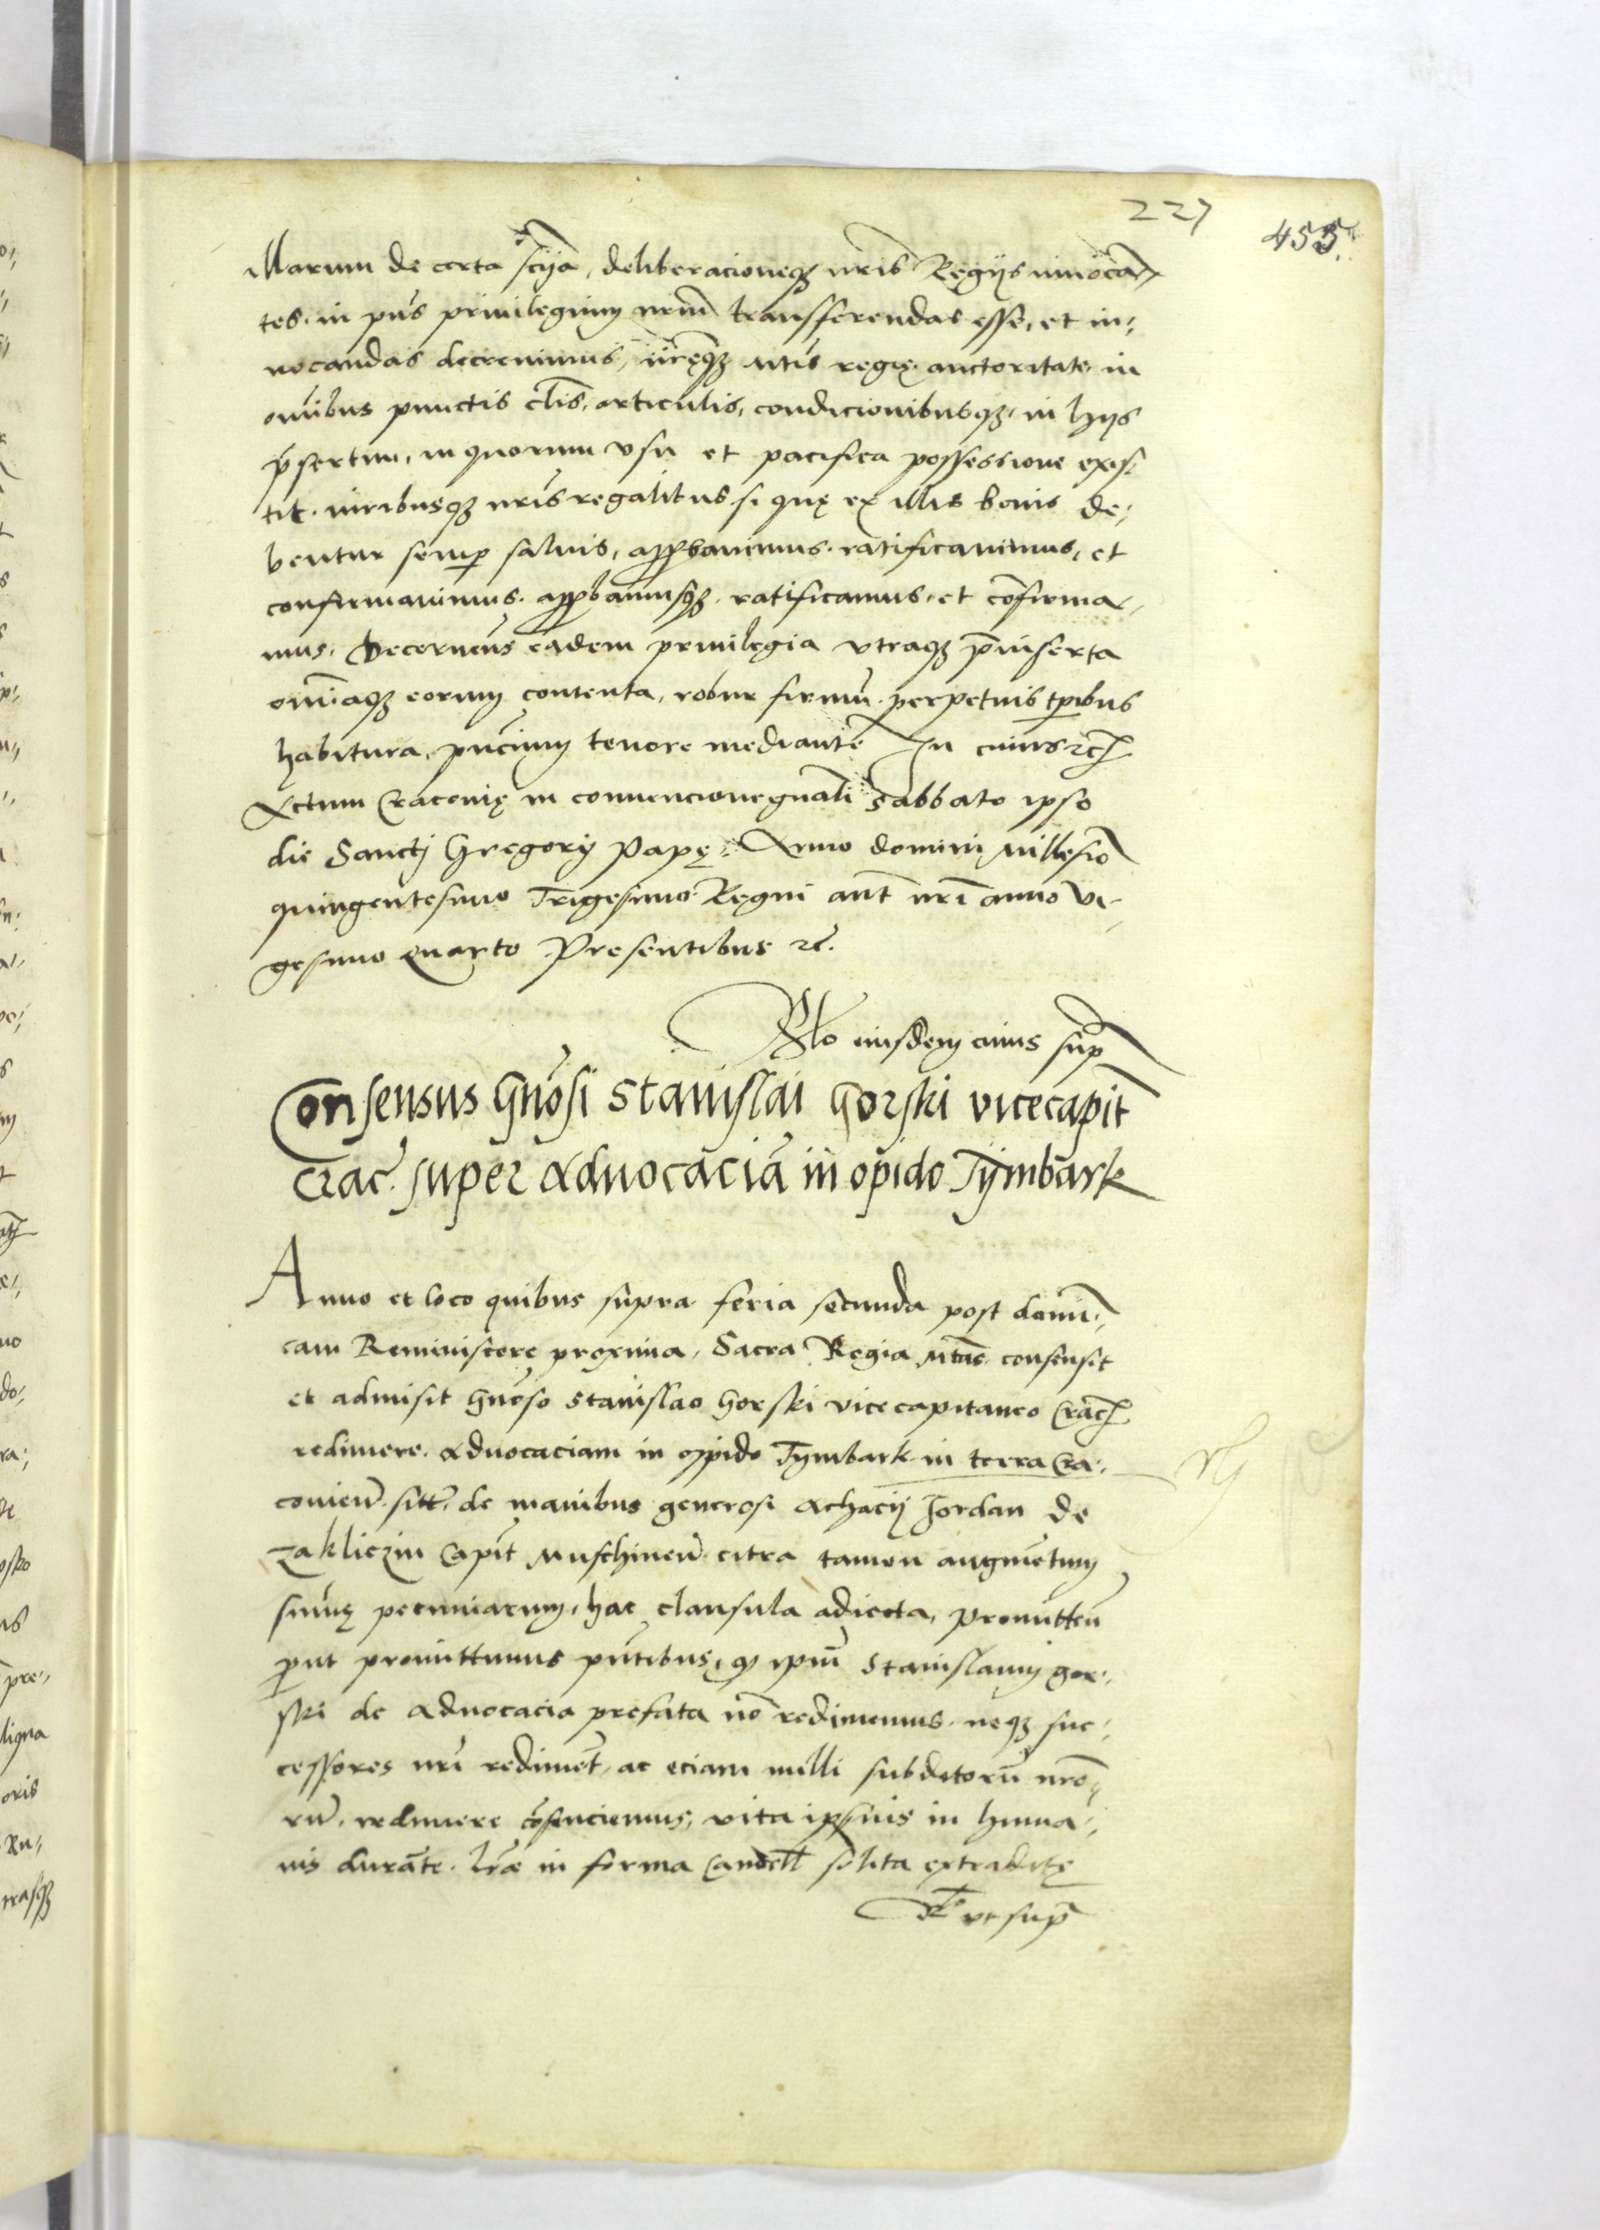 227
455
illarum de certa scīa, deliberacioneqȝ nrīs Regijs innocan-
tes. in pn̄s priuilegium nrm̄ transferendas esse, et in-
nocandas decreuimus, nr̄eqȝ Mtīs regię auctoritate in
omībus punctis cl̄is, articulis, condicionibusqȝ, in hijs
p̄sertim, in quorum vsu et pacifica possessione exis-
tit. iuribusqȝ nrīs regalibus si quę ex illis bonis de-
bentur semp̄ saluis, approbauimus. ratificauimus, et
confirmauimus. approbamusqȝ. ratificamus, et cōfirma-
mus. Decernen̄s eadem priuilegia vtraqȝ p̄inserta
omīaqȝ eorum contenta, robur firmū perpetuis tp̄ribus
habitura, pn̄cium tenore mediante In cuius rc̄
Actum Cracouię in conuencione gnāli Sabbato ipso
die Sanctj Gregorij Papę. Anno domini Millesiō
quingentesimo Trigesimo Regni aūt nrī anno vi-
gesimo quarto Presentibus rc̄.
Rlo eiusdem cuius sup̄
Consensus Gnōsi Stanislai Gorski vicecapit̄
Crac̄. super Aduocaciā in opido Tymbark
Anno et loco quibus supra feria secunda post domī-
cam Reminiscere proxima, Sacra Regia Mtas consensit
et admisit Gnōso Stanislao Gorski vicecapitaneo Crac̄
redimere Aduocaciam in oppido Tymbark in terra Cra-
couien̄. sitt̄. de manibus generosi Achacij Jordan de
Zakliczin Capit̄ Muschinen̄. citra tamen augmētum
sum̄ę pecuniarum, hac clausula adiecta, promitten̄
p̄ut promittimus pn̄tibus, qȝ ipm̄ Stanislaum gor-
ski de Aduocacia prefata nō redimemus. neqȝ suc-
cessores nrī rediment, ac eciam nulli subditorū nrō-
rū. redimere cōsenciemus, vita ipsius in huma-
nis durāte. lr̄ae in forma Cancell̄ solita extraditę
Rlo vt sup̄